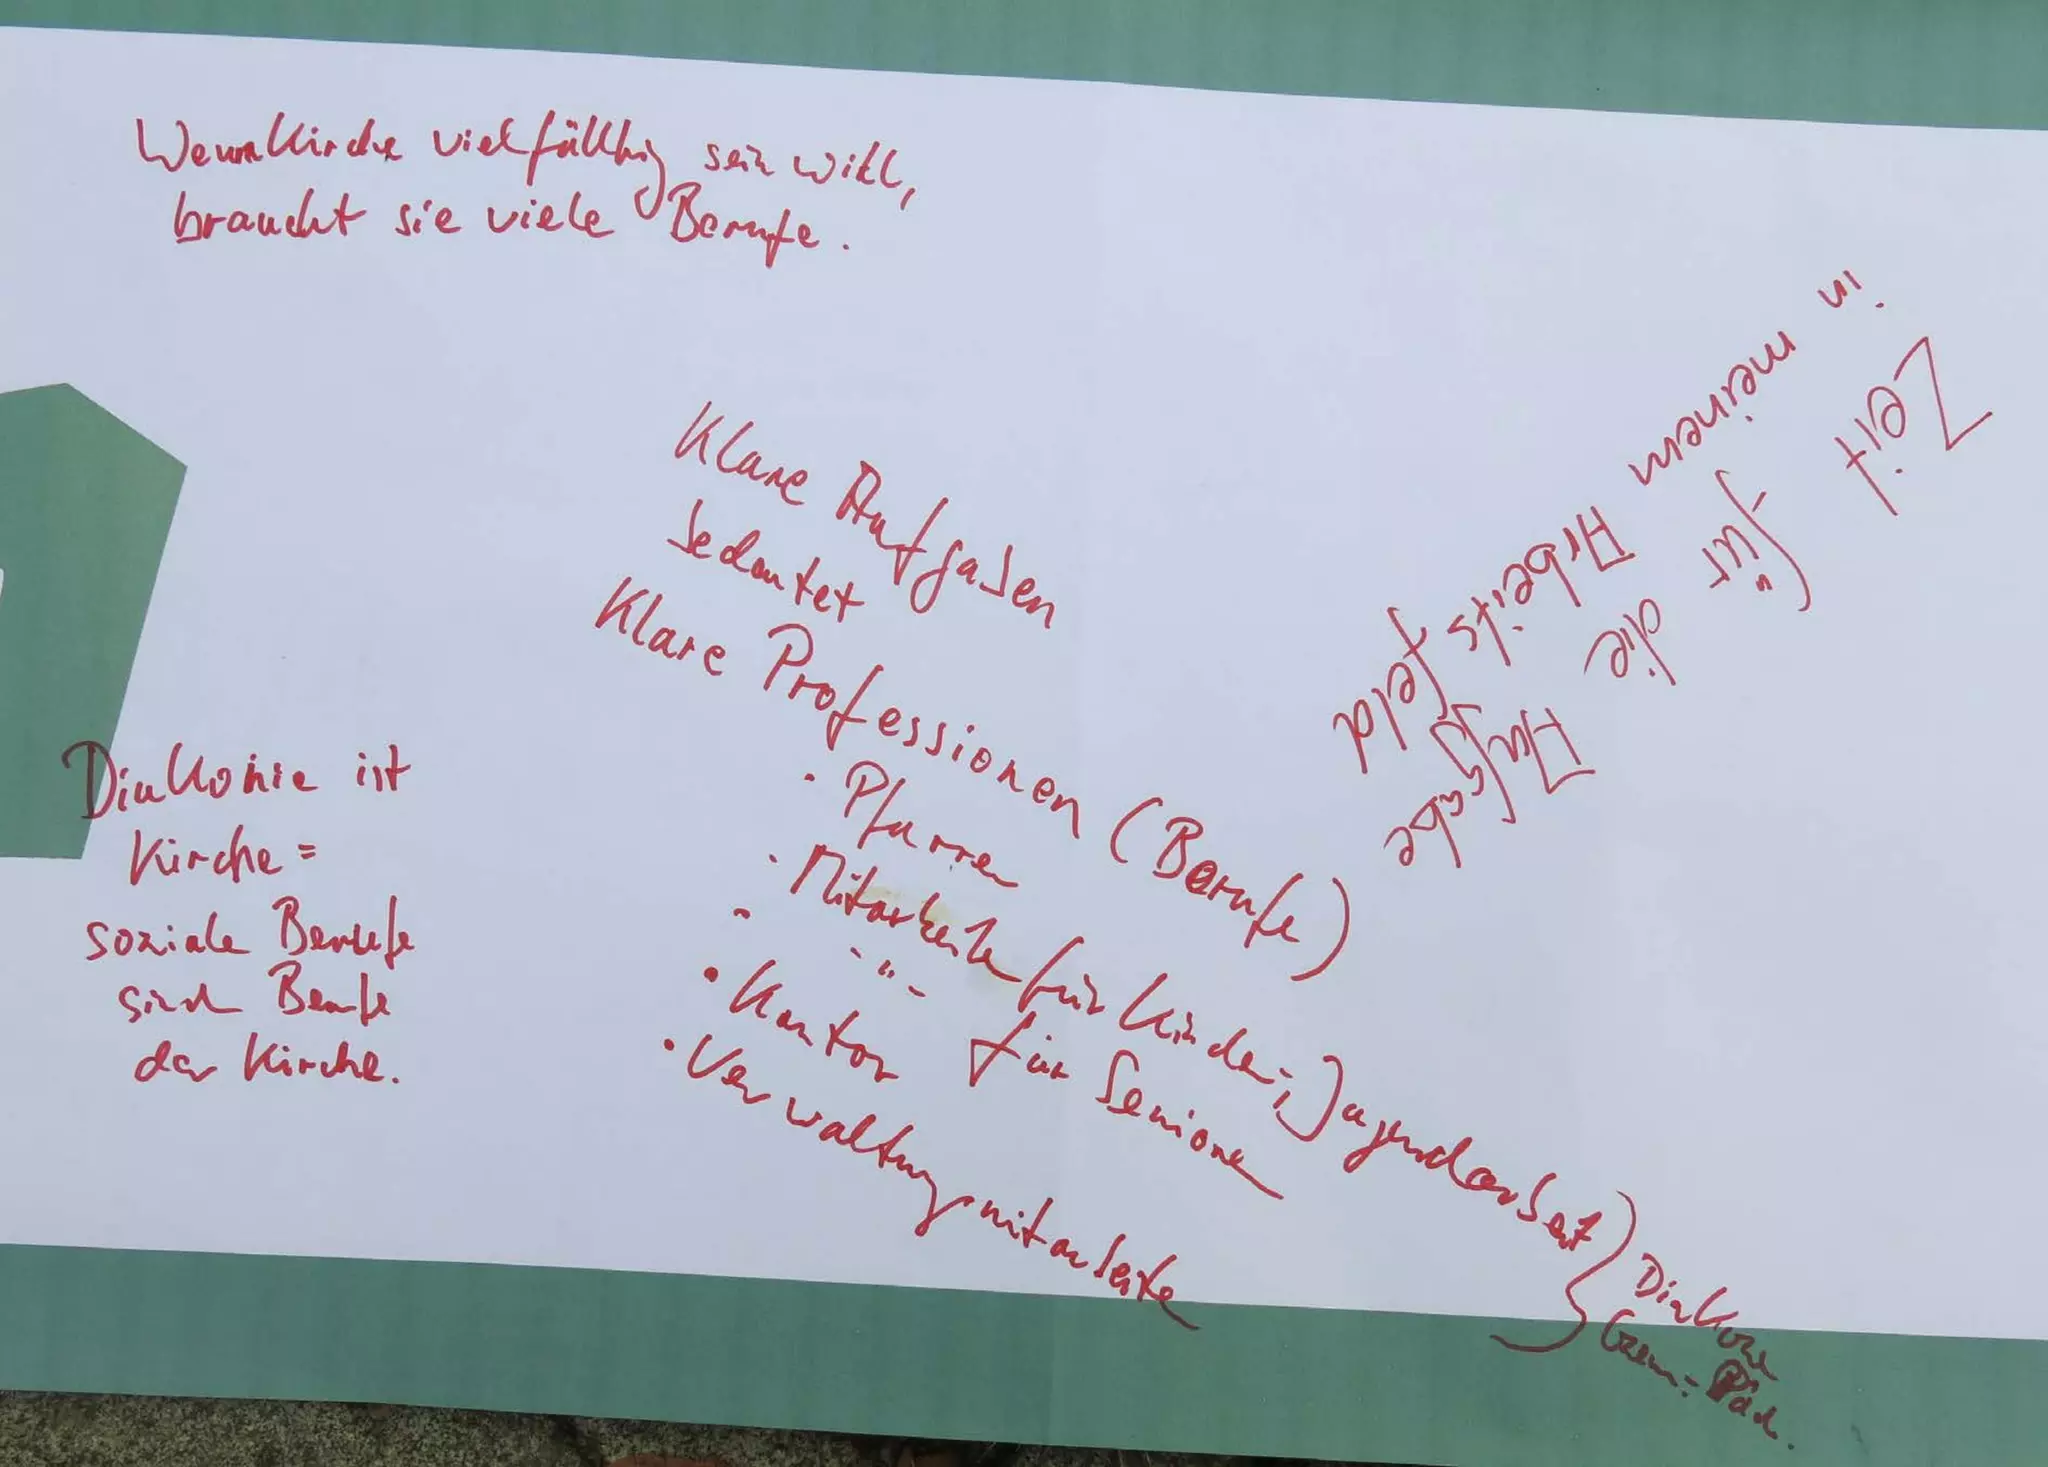 Wenn Kirche vielfälltig sein will,
braucht sie viele Berufe.
Klare Aufgaben
bedeutet
Klare Professionen (Berufe)
· Pfarrer
· Mitarbeiter für Kinder-, Jugendarbeit
- - " - für Senioren
· Kantor
· Verwaltungsmitarbeiter
} Diakone
Gem.-Päd.
Diakonie ist
Kirche =
soziale Berufe
sind Berufe
der Kirche.
Zeit für die Aufgabe
in meinem Arbeitsfeld